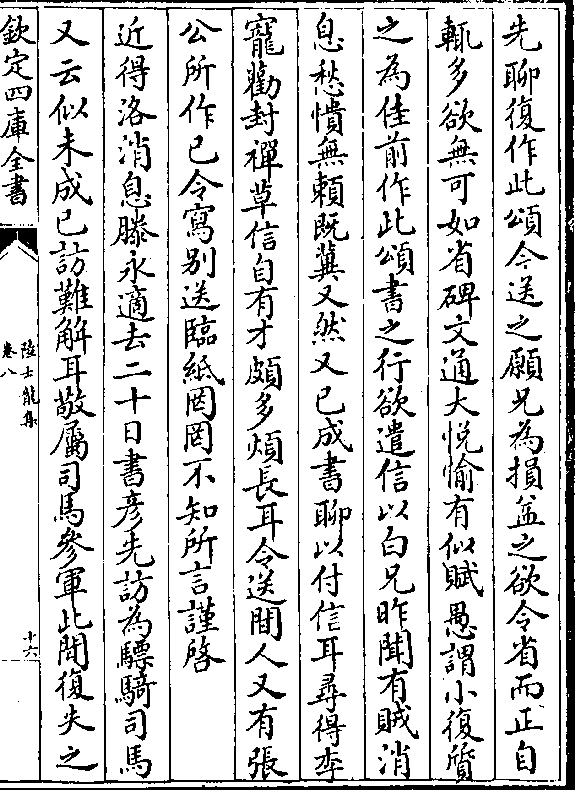 先聊復作此頌今送之願兄為損益之欲令省而正自
輒多欲無可如省碑文通大悅愉有似賦愚謂小復質
之為佳前作此頌書之行欲遣信以白兄昨聞有賊消
息愁憒無賴既冀又然又已成書聊以付信耳尋得李
寵勸封禪草信自有才頗多煩長耳令送間人又有張
公所作已令寫别送臨紙罔罔不知所言謹啓
近得洛消息滕永通去二十日書彦先訪為驃騎司馬
又云似未成已訪難解耳敬屬司馬參軍此間復失之
欽定四庫全書
陸士龍集
卷八
十六